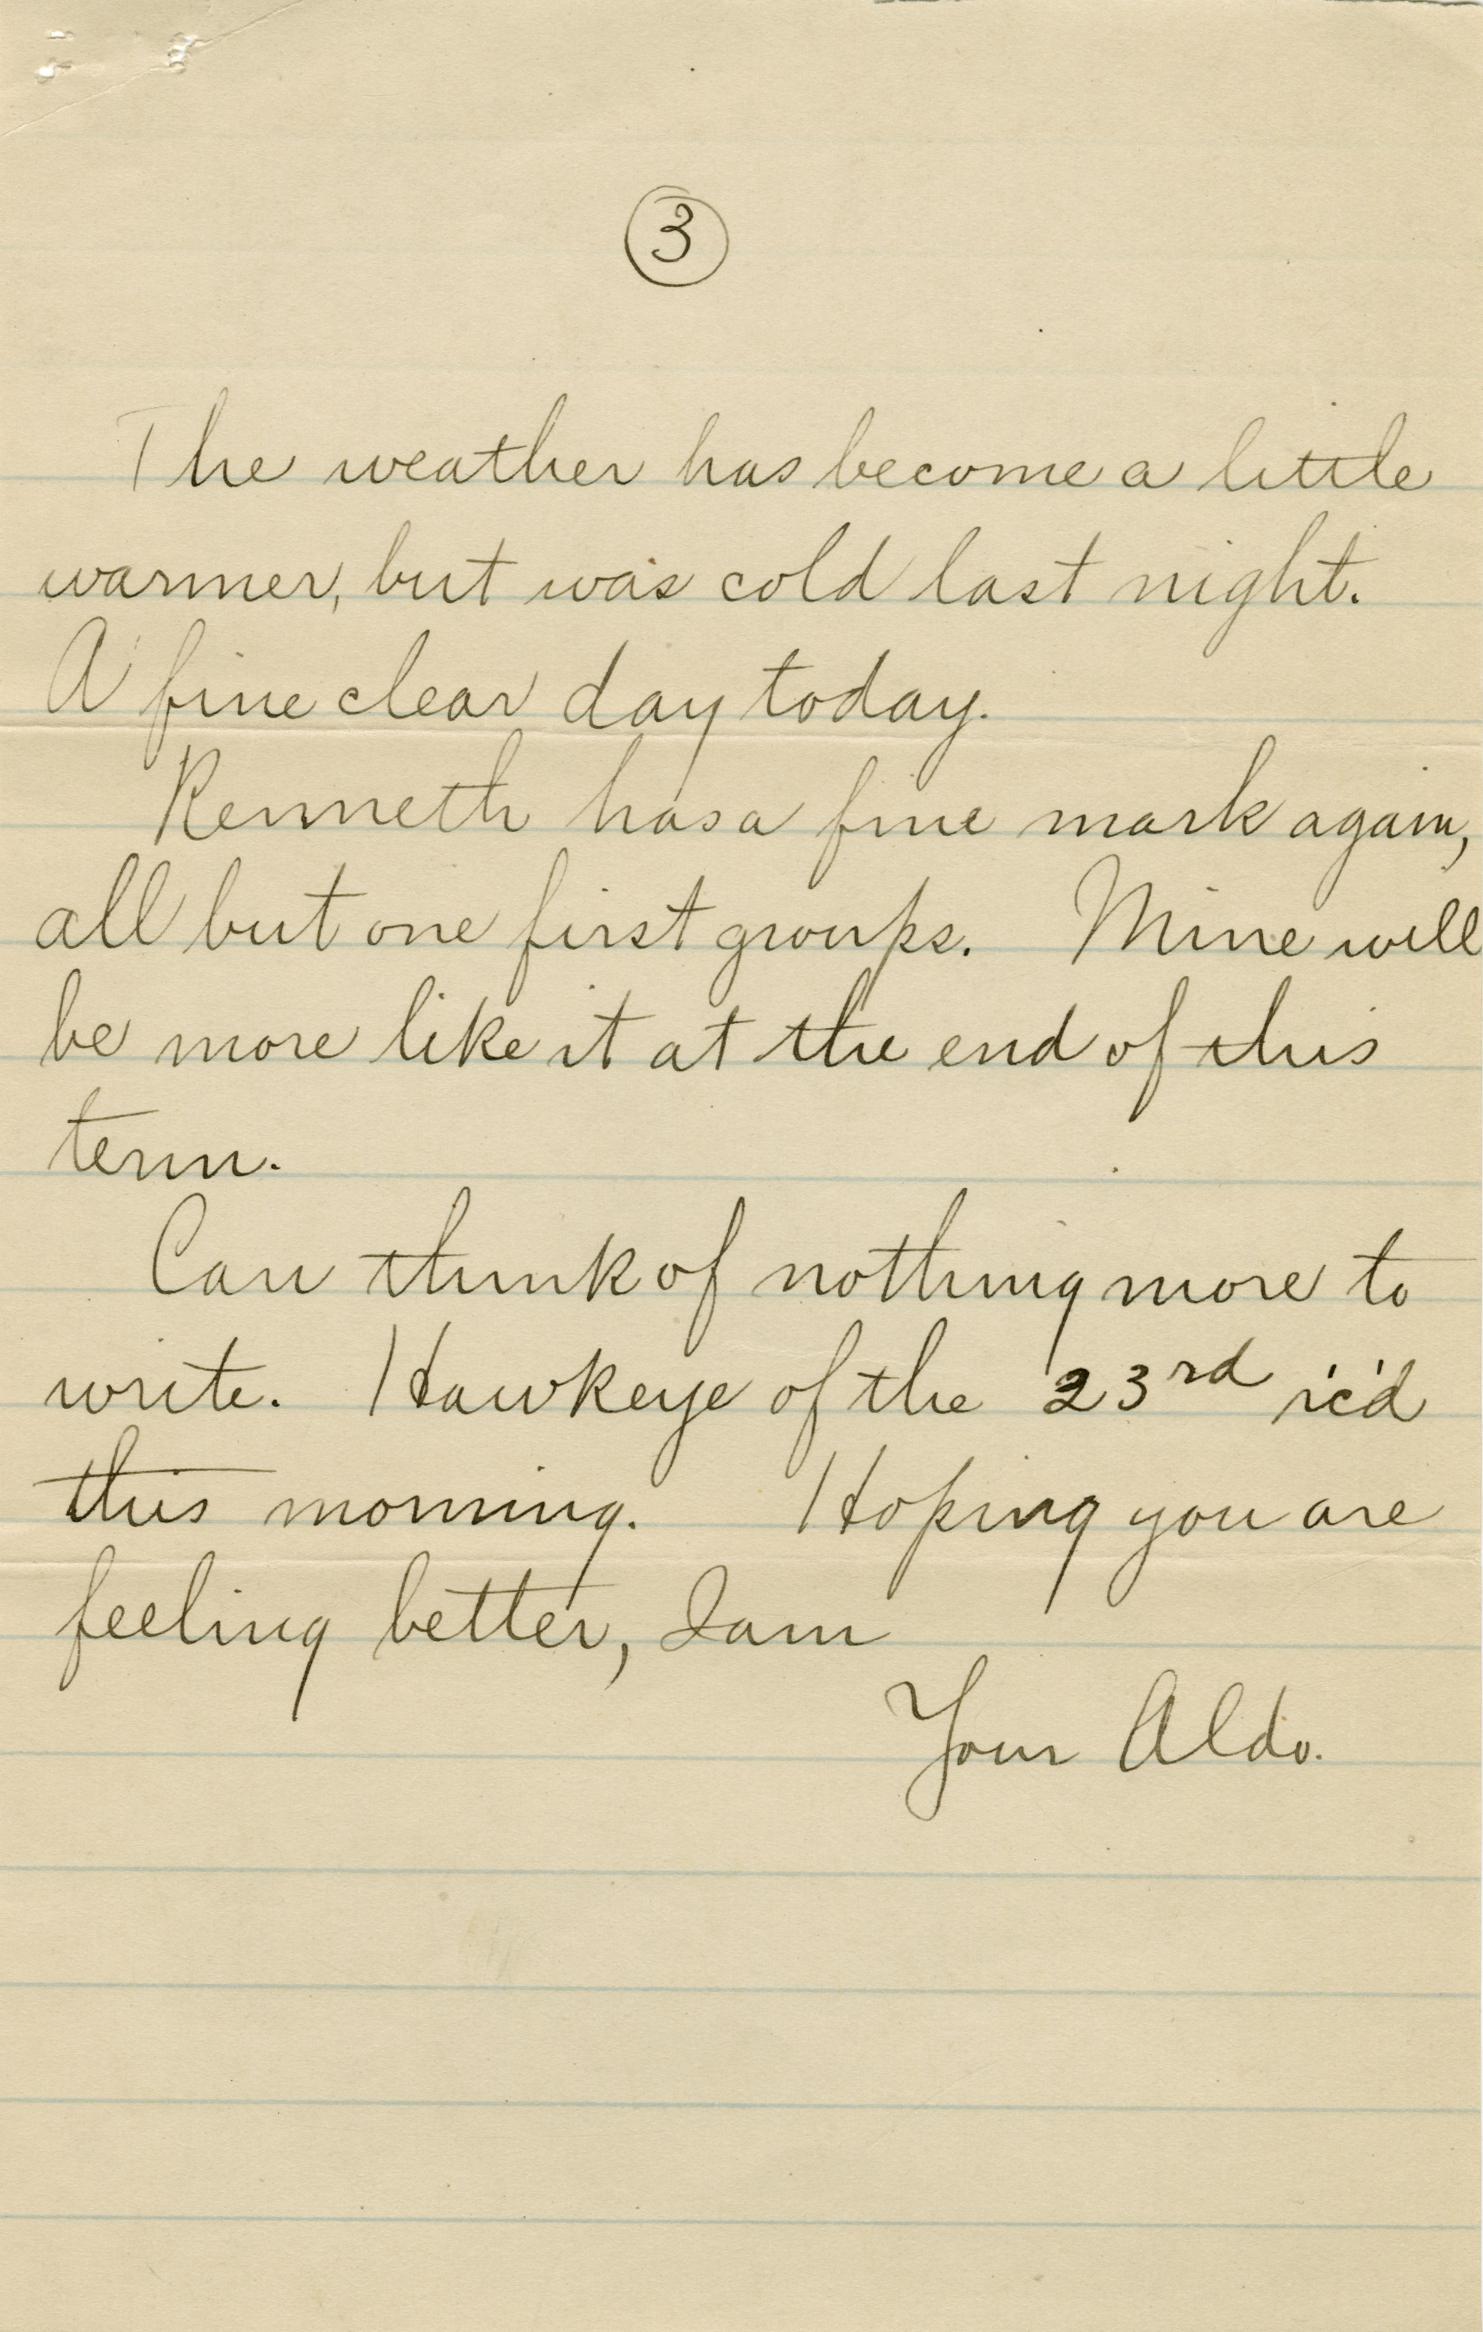 3
The weather has become a little
warmer, but was cold last night.
A fine clear day today.
Kenneth has a fine mark again,
all but one first groups. Mine will
be more like it at the end of this
term.
Can think of nothing more to
write. Hawkeye of the 23rd rc'd
this morning. Hoping you are
feeling better, I am
Your Aldo.